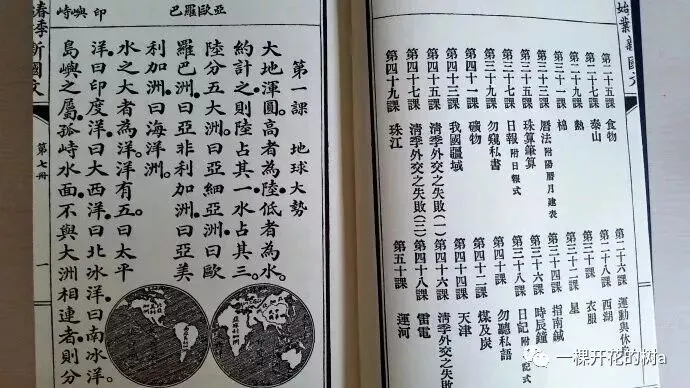 始業新國文
第二十五課 食物 第二十六課 運動與休
第二十七課 泰山 第二十八課 西湖
第二十九課 熱 第三十課 衣服
第三十一課 棉 第三十二課 星
第三十三課 曆法附陽曆月建表 第三十四課 指南鍼
第三十五課 珠算筆算 第三十六課 時辰鐘
第三十七課 日報附日報式 第三十八課 日記附日記式
第三十九課 勿窺私書 第四十課 勿聽私語
第四十一課 礦物 第四十二課 煤及炭
第四十三課 我國疆域 第四十四課 天津
第四十五課 清季外交之失敗(一) 第四十六課 清季外交之失敗(二)
第四十七課 清季外交之失敗(三) 第四十八課 雷電
第四十九課 珠江 第五十課 運河
亞歐羅巴 印 嶼峙
第一課 地球大勢
大地渾圓。高者為陸。低者為水。
約計之。則陸占其一。水占其三。
陸分五大洲。曰亞細亞洲。曰歐
羅巴洲。曰亞非利加洲。曰亞美
利加洲。曰海洋洲。
水之大者為洋。洋有五。曰太平
洋。曰印度洋。曰大西洋。曰北冰洋。曰南冰洋。
島嶼之屬。孤峙水面。不與大洲相連者。則分
春季新國文 第七冊 一
一棵开花的树a